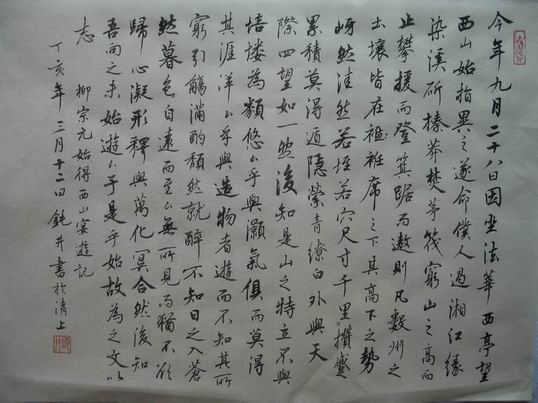 今年九月二十八日因坐法華西亭望
西山始指異之遂命僕人過湘江緣
染溪斫榛莽焚茅茷窮山之高而
止攀援而登箕踞而遨則凡數州之
土壤皆在衽席之下其高下之勢
岈然洼然若垤若穴尺寸千里攢蹙
累積莫得遁隱縈青繚白外與天
際四望如一然後知是山之特立不與
培塿為類悠々乎與灝氣俱而莫得
其涯洋々乎與造物者遊而不知其所
窮引觴滿酌頹然就醉不知日之入蒼
然暮色自遠而至々無所見而猶不欲
歸心凝形釋與萬化冥合然後知
吾向之未始遊々于是乎始故為之文以
志
柳宗元始得西山宴遊記
丁亥年三月十二日鈍井書於清上